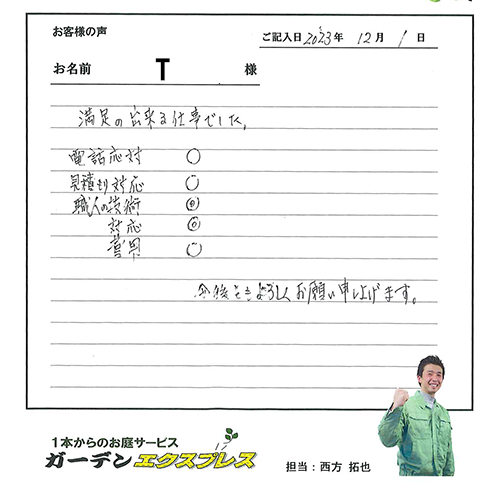 お客様の声
ご記入日 2023年 12月 1日
お名前 T 様
満足の出来る仕事でした。
電話応対 ○
見積もり対応 ○
職人の技術 ◎
対応 ◎
費用 ○
今後ともよろしくお願い申し上げます。
1本からのお庭サービス
ガーデンエクスプレス
担当：西方 拓也